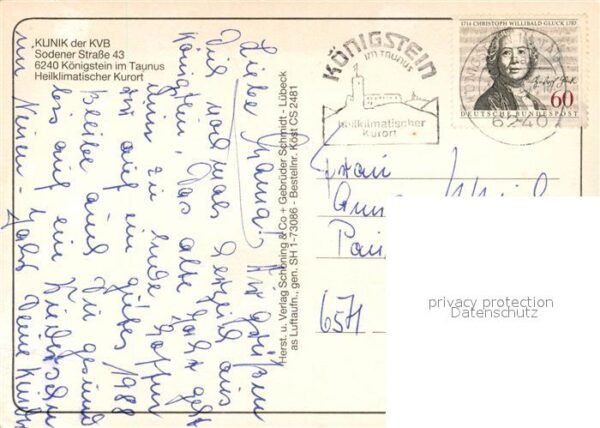 KLINIK der KVB
Sodener Straße 43
6240 Königstein im Taunus
Heilklimatischer Kurort
KÖNIGSTEIN
im TAUNUS
Heilklimatischer
Kurort
1714 CHRISTOPH WILLIBALD GLUCK 1787
60
DEUTSCHE BUNDESPOST
6240
Liebe Mama! Wir grüßen
nochmals herzlich aus
Königstein. Das alte Jahr geht
nun zu Ende, hoffen
wir auf ein gutes 1988
Bleibe auch Du gesund
bis auf ein Wiedersehn
im Neuen-Jahr Deine Kinder
Herst. u. Verlag Schöning & Co + Gebrüder Schmidt - Lübeck
as Luftaufn., gen. SH 1-73086 - Bestellnr. Köst CS 2481
Frau
6571
privacy protection
Datenschutz